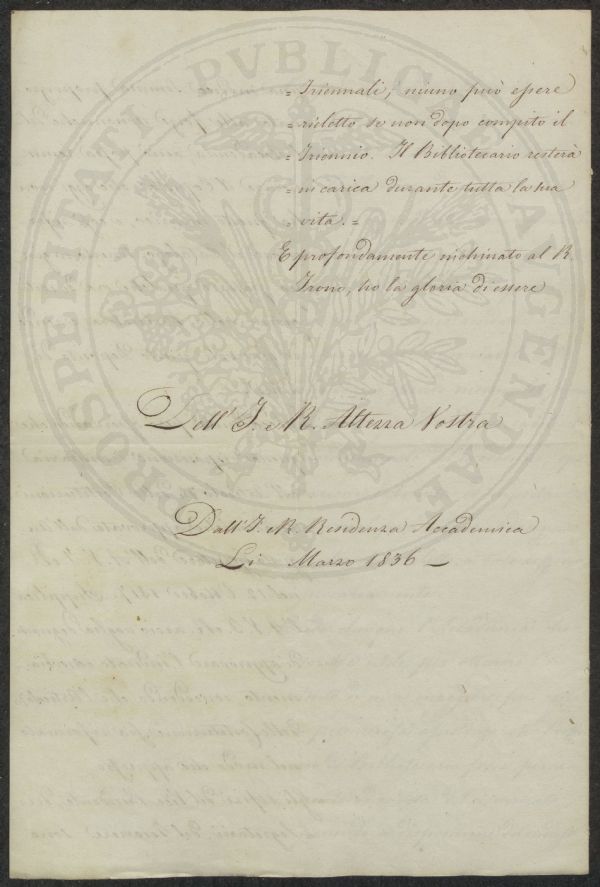 = Triennali; niuno può essere
= rieletto se non dopo compito il
= Triennio. Il Bibliotecario resterà
= in carica durante tutta la sua
= vita. =
E profondamente inchinato al R.
Trono, ho la gloria di essere
Dell' I. e R. Altezza Vostra
Dall' I. e R. Residenza Accademica
Li Marzo 1836 —
PROSPERITATI PVBLICAE AVGENDAE